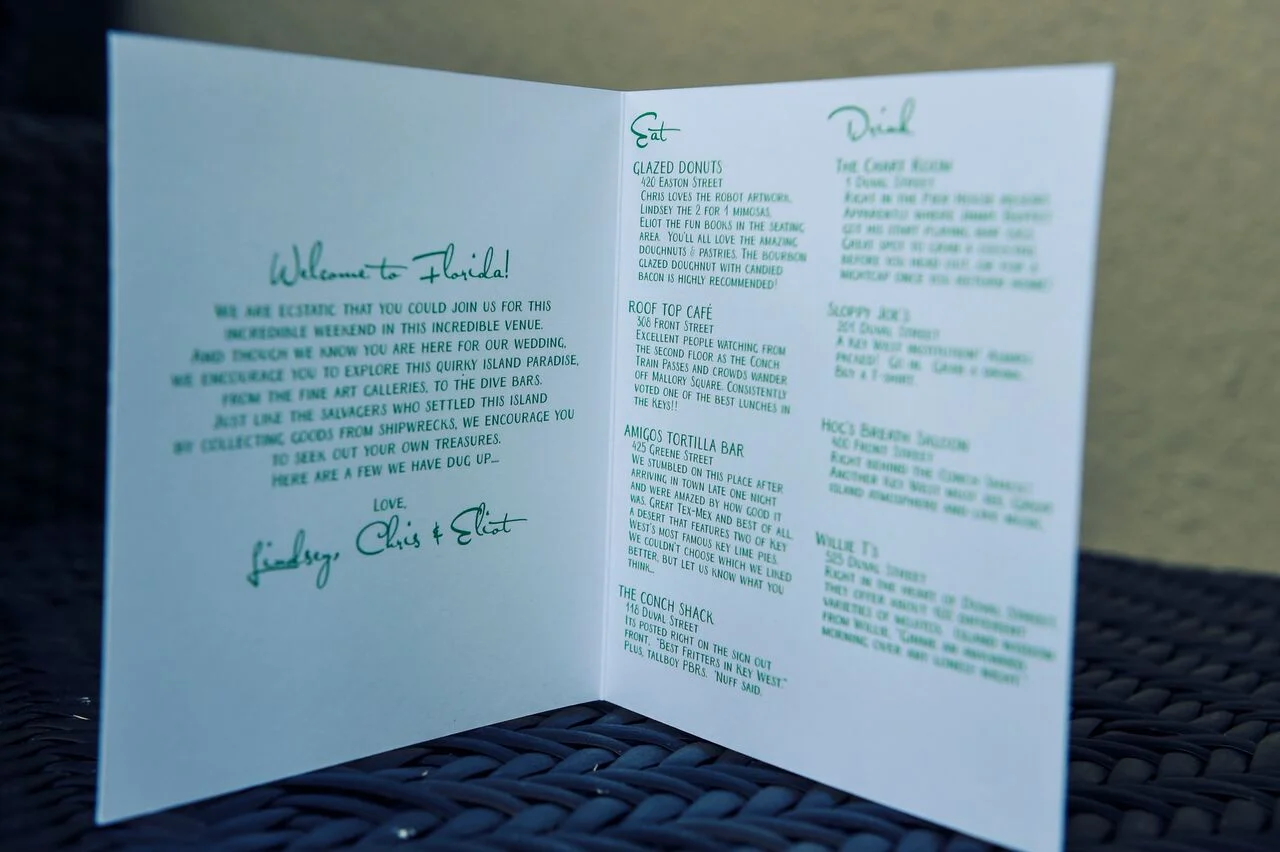 Welcome to Florida!
WE ARE ECSTATIC THAT YOU COULD JOIN US FOR THIS
INCREDIBLE WEEKEND IN THIS INCREDIBLE VENUE.
AND THOUGH WE KNOW YOU ARE HERE FOR OUR WEDDING,
WE ENCOURAGE YOU TO EXPLORE THIS QUIRKY ISLAND PARADISE,
FROM THE FINE ART GALLERIES, TO THE DIVE BARS.
JUST LIKE THE SALVAGERS WHO SETTLED THIS ISLAND
BY COLLECTING GOODS FROM SHIPWRECKS, WE ENCOURAGE YOU
TO SEEK OUT YOUR OWN TREASURES.
HERE ARE A FEW WE HAVE DUG UP...
LOVE,
Lindsey, Chris & Eliot
Eat
GLAZED DONUTS
420 EASTON STREET
CHRIS LOVES THE ROBOT ARTWORK,
LINDSEY THE 2 FOR 1 MIMOSAS,
ELIOT THE FUN BOOKS IN THE SEATING
AREA. YOU'LL ALL LOVE THE AMAZING
DOUGHNUTS & PASTRIES. THE BOURBON
GLAZED DOUGHNUT WITH CANDIED
BACON IS HIGHLY RECOMMENDED!
ROOF TOP CAFÉ
308 FRONT STREET
EXCELLENT PEOPLE WATCHING FROM
THE SECOND FLOOR AS THE CONCH
TRAIN PASSES AND CROWDS WANDER
OFF MALLORY SQUARE. CONSISTENTLY
VOTED ONE OF THE BEST LUNCHES IN
THE KEYS!!
AMIGOS TORTILLA BAR
425 GREENE STREET
WE STUMBLED ON THIS PLACE AFTER
ARRIVING IN TOWN LATE ONE NIGHT
AND WERE AMAZED BY HOW GOOD IT
WAS. GREAT TEX-MEX AND BEST OF ALL,
A DESERT THAT FEATURES TWO OF KEY
WEST'S MOST FAMOUS KEY LIME PIES.
WE COULDN'T CHOOSE WHICH WE LIKED
BETTER, BUT LET US KNOW WHAT YOU
THINK...
THE CONCH SHACK
118 DUVAL STREET
ITS POSTED RIGHT ON THE SIGN OUT
FRONT, "BEST FRITTERS IN KEY WEST."
PLUS, TALLBOY PBRS. 'NUFF SAID.
Drink
THE CHART ROOM
1 DUVAL STREET
RIGHT IN THE PIER HOUSE RESORT
APPARENTLY WHERE JIMMY BUFFETT
GOT HIS START PLAYING
GREAT SPOT TO GRAB A COCKTAIL
BEFORE YOU HEAD OUT, OR FOR A
NIGHTCAP ONCE YOU RETURN HOME!
SLOPPY JOE'S
201 DUVAL STREET
A KEY WEST INSTITUTION! ALWAYS
PACKED! GO IN. GRAB A DRINK.
BUY A T-SHIRT.
HOG'S BREATH SALOON
400 FRONT STREET
RIGHT BEHIND THE CONCH SHACK!
ANOTHER KEY WEST MUST SEE. GREAT
ISLAND ATMOSPHERE AND LIVE MUSIC.
WILLIE T'S
525 DUVAL STREET
RIGHT IN THE HEART OF DUVAL STREET!
THEY OFFER ABOUT DIFFERENT
VARIETIES OF MOJITOS. ISLAND WISDOM
FROM WILLIE,
MORNING OVER ANY LONELY NIGHT!"